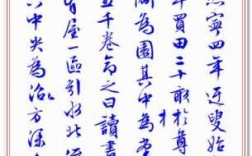 熙寧四年迂叟始
年買田二十畝於尊
為園其中為堂
五千卷命之曰讀書
有屋一區引水北流
中央為沼方深